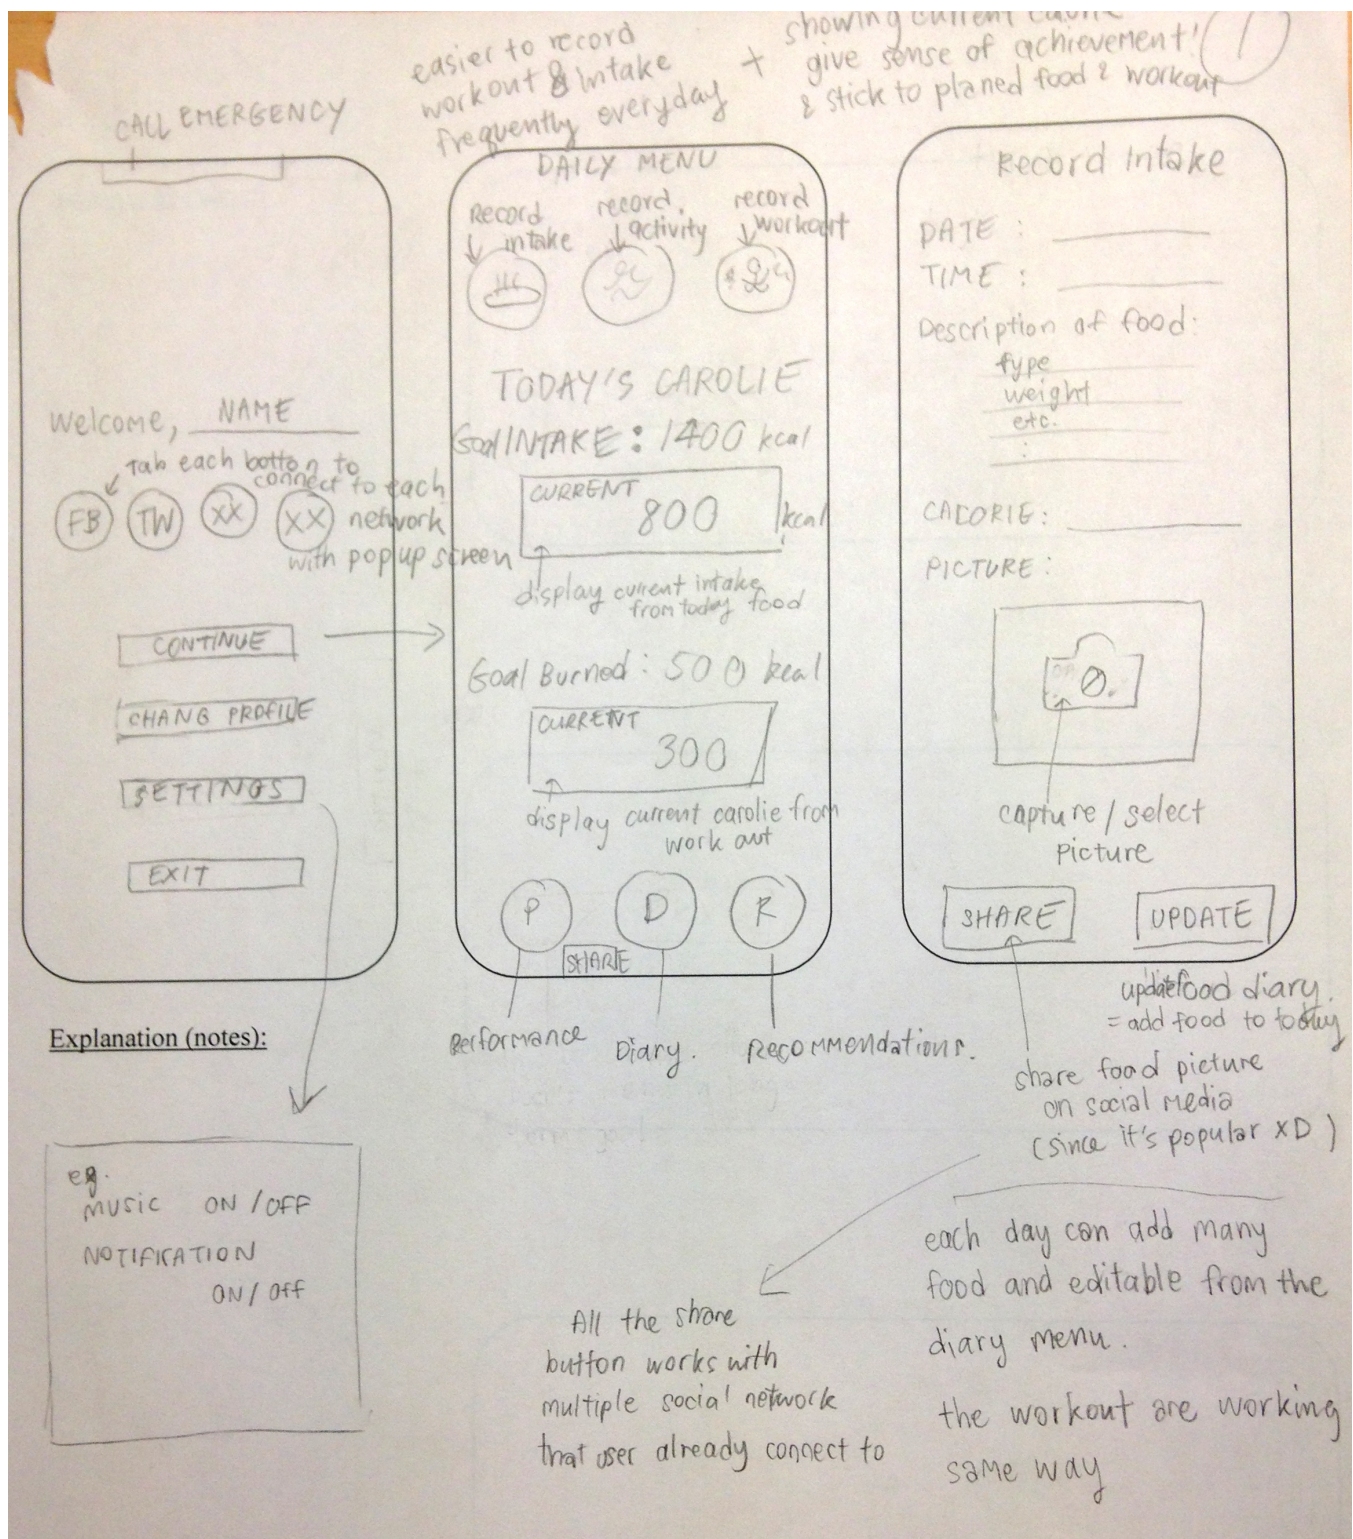 easier to record
workout & intake
frequently everyday
+
showing current calorie
give sense of achievement!
& stick to planed food & workout
1
CALL EMERGENCY
Welcome, NAME
Tab each botton to
connect to each
network
with pop up screen
FB
TW
XX
XX
CONTINUE
CHANG PROFILE
SETTINGS
EXIT
DAILY MENU
Record
intake
record
activity
record
workout
TODAY'S CAROLIE
Goal INTAKE: 1400 kcal
CURRENT
800 kcal
display current intake
from today food
Goal Burned: 500 kcal
CURRENT
300
display current carolie from
work out
P
D
R
SHARE
Performance
Diary.
Recommendations.
Record Intake
DATE :
TIME :
Description of food:
type
weight
etc.
:
CALORIE:
PICTURE:
capture / select
picture
SHARE
UPDATE
update food diary.
= add food to today
share food picture
on social media
(since it's popular XD)
each day can add many
food and editable from the
diary menu.
the workout are working
same way
All the share
button works with
multiple social network
that user already connect to
Explanation (notes):
eg.
MUSIC ON / OFF
NOTIFICATION
ON / Off